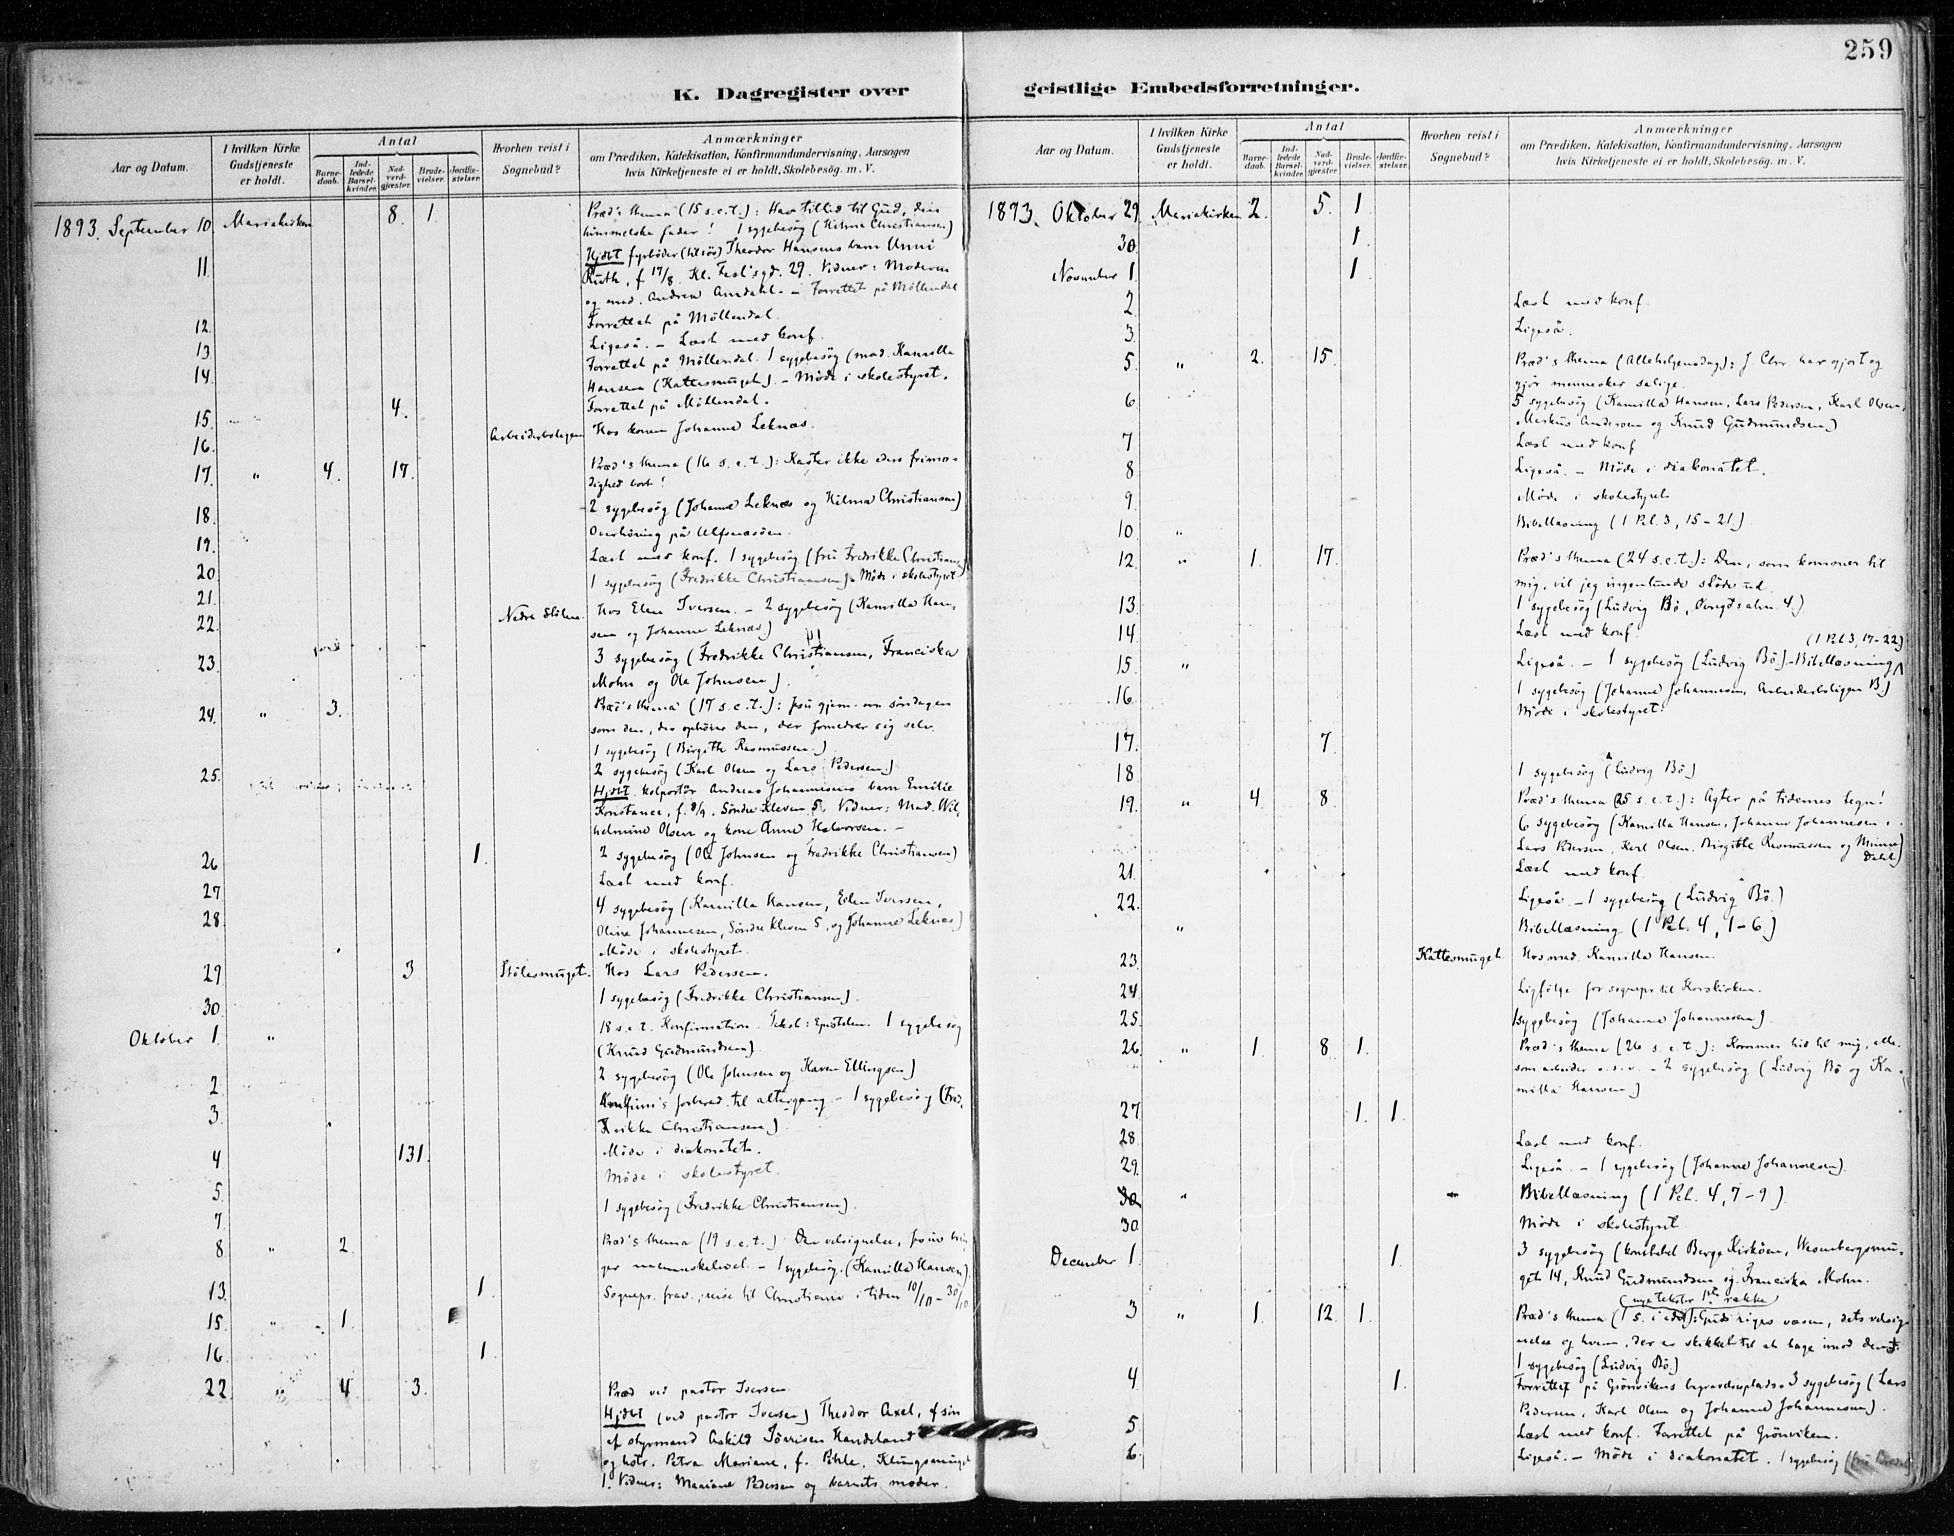 259
K. Dagregister over geistlige Embedsforretninger.
Aar og Datum. I hvilken Kirke Gudstjeneste er holdt. Antal Barnedaab. Indledede Barselkvinder. Nadverdgjæster. Brudevielser. Jordfæstelser. Hvorhen reist i Sognebud? Anmærkninger om Prædiken, Katekisation, Konfirmandundervisning, Aarsagen hvis Kirketjeneste ei er holdt, Skolebesøg. m. V.
1893. September 10. Mariakirken 8. 1. Præd's thema (15 s.e.t.): Hav tillid til Gud, din
himmelske fader! 1 sygebesøg (Hilma Christiansen)
11. Hjdbt fyrbøder (tilsøs) Theodor Hansens barn Unni
Ruth, f. 17/8. Kl. 29. Vidner: Moderen
og mad. Andrea Amdahl. – Forrettet på Möllendal
12. Forrettet på Möllendal.
13. Ligeså. – Læst med konf.
14. Forrettet på Möllendal. 1 sygebesøg (mad. Kamilla
Hansen (Kattesmuget). – Möde i skolestyret.
15. 4. Forrettet på Möllendal.
16. Arbeiderboligen Hos konen Johanne Leknæs.
17. " 4. 17. Præd's thema (16 s.e.t.): Kaster ikke eders frimo-
dighed bort!
18. 2 sygebesøg (Johanne Leknæs og Hilma Christiansen)
19. Overhöring på Ulfsnæsöen.
20. Læst med konf. 1 sygebesøg (fru Fredrikke Christiansen)
21. 1 sygebesøg (Fredrikke Christiansen). Möde i skolestyret
22. Nedre Stölen. Hos Elen Iversen. – 2 sygebesøg (Kamilla Han-
sen og Johanne Leknæs)
23. 3 sygebesøg (Fredrikke Christiansen, Franciska
Mohn og Ole Johnsen).
24. " 3. Præd's thema (17 s.e.t.): söndagen
som den, der ophöier den, der fornedrer sig selv.
1 sygebesøg (Birgithe Rasmussen.)
25. 2 sygebesøg (Karl Olsen og Lars Pedersen)
Hjdbt. kolportör Andreas Johannesens barn Emilie
Konstance, f. 8/9. Söndre Kleven 5. Vidner: Mad. Wil-
helmine Olsen og kone Anne Halvorsen. –
26 1. 2 sygebesøg (Ole Johnsen og Fredrikke Christiansen)
27 Læst med konf.
28 4 sygebesøg (Kamilla Hansen, Elen Iversen,
Oline Johannesen, Söndre Kleven 5, og Johanne Leknæs)
Möde i skolestyret.
29 3 Stölesmuget. Hos Lars Pedersen.
30. 1 sygebesøg (Fredrikke Christiansen).
Oktober 1. " 18 s.e.t. Konfirmation. Tekst: Epistelen. 1 sygebesøg
(Knud Gudmundsen).
2 2 sygebesøg (Ole Johnsen og Karen Ellingsen)
3. Konfirm's forbered. til altergang – 1 sygebesøg (Fred-
rikke Christiansen)
4 131. Möde i diakonatet.
5. Möde i skolestyret.
7. 1 sygebesøg (Fredrikke Christiansen).
8 " 2. Præd's thema (19 s.e.t.) Den velsignelse,
– 1 sygebesøg. (Kamilla Hansen)
13. 1. Sognepr. frav. reise til Christiania i tiden 10/10 – 30/10
15. " 1.
16. 1.
22 " 4 3. Præd ved pastor Iversen.
Hjdbt (ved pastor Iversen) Theodor Axel, sön
af styrmand Askild Handeland
og hstr. Petra Mariane, f. Pihle, Klingsmuget
1. Vidner: Mariane Pedersen og barnets moder.
Aar og Datum. I hvilken Kirke Gudstjeneste er holdt. Antal Barnedaab. Indledede Barselkvinder. Nadverdgjæster. Brudevielser. Jordfæstelser. Hvorhen reist i Sognebud? Anmærkninger om Prædiken, Katekisation, Konfirmandundervisning, Aarsagen hvis Kirketjeneste ei er holdt, Skolebesøg. m. V.
1893. Oktober 29. Mariakirken 2. 5. 1
30. 1.
November 1. 1.
2 Læst med konf.
3. Ligeså.
5. " 2. 15. Præd's thema (Allehelgensdag): J. Chr. har gjort og
gjör mennesker salige.
6 5 sygebesøg (Kamilla Hansen, Lars Pedersen, Karl Olsen,
Markus Andersen og Knud Gudmundsen)
7 Læst med konf
8 Ligeså. – Möde i diakonatet.
9 Möde i skolestyret
10 " Bibellæsning (1 Pet. 3, 15–21.)
12. " 1. 17. Præd's thema (24 s.e.t.): Den, som kommer til
mig, vil jeg ingenlunde støde ud.
13. 1 sygebesøg (Ludvig Bö, 4.)
14. Læst med konf.
15. " Ligeså. – 1 sygebesøg (Ludvig Bö) – Bibellæsning (1 Pet 3, 17–22)
16. 1 sygebesøg (Johanne Johannesen, Arbeiderboligen B)
Möde i skolestyret.
17. 7.
18 1 sygebesøg (Ludvig Bö)
19. " 4. 8. Præd's thema (25 s.e.t.): Agter på tidernes tegn!
6 sygebesøg (Kamilla Hansen, Johanne Johannesen,
Lars Pedersen, Karl Olsen, Birgitte Rasmussen og Minne
Dahl)
21. Læst med konf.
22. Ligeså. – 1 sygebesøg (Ludvig Bö.)
" Bibellæsning (1 Pet. 4, 1–6.)
23. Kattesmuget. Hos mad. Kamilla Hansen.
24 Ligfölge for sognepr. til Korskirken.
25. 1 sygebesøg (Johanne Johannesen).
26. " 1. 8. 1. Præd's thema (26 s.e.t.): Kommer hid til mig, alle.
som arbeider o.s.v. – 2 sygebesøg (Ludvig Bö og Ka-
milla Hansen)
27 1. 1.
28. Læst med konf.
29. Ligeså. – 1 sygebesøg (Johanne Johannesen).
30 " Bibellæsning (1 Pet. 4, 7–9).
30. Möde i skolestyret.
December 1. 1. 3 sygebesøg (konstabel Berge Kirköen, Wesenbergsmu-
get 14, Knud Gudmundsen og Franciska Mohn.
(nye tekster 1ste række)
3 " 1. 12 1. Præd's thema (1 s. i adv.): Guds riges væsen, dets velsig-
nelse og hvem, der er skikket til at tage imod det.
1 sygebesøg (Ludvig Bö.)
4 1. Forrettet på Grönvikens begravelsesplads. 3 sygebesøg (Lars
Pedersen, Karl Olsen og Johanne Johannesen).
5 Læst med konf. Forrettet på Grönviken.
6. Ligeså. – Möde i diakonatet. 1 sygebesøg